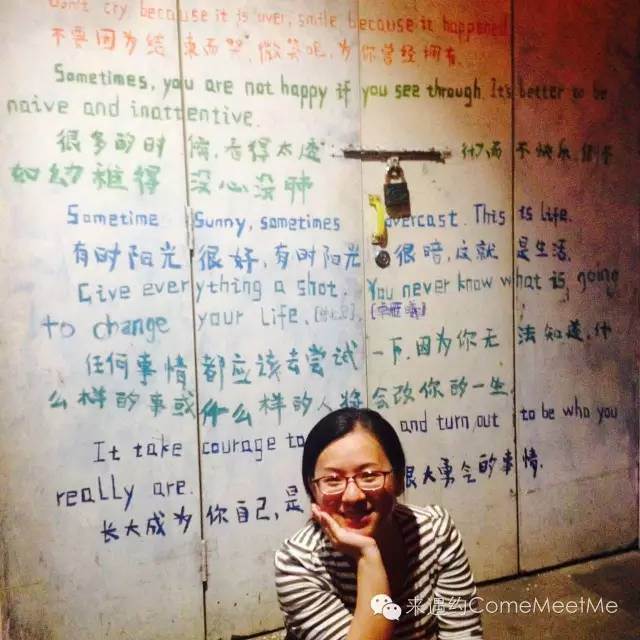 Don't cry because it is over, smile because it happened
不要因为结束而哭,微笑吧,为你曾经拥有
Sometimes, you are not happy if you see through. It's better to be
naive and inattentive.
很多的时 看得太透 而不快乐,
如幼稚得 没心没肺
Sometime Sunny, sometimes overcast. This is life.
有时阳光很好,有时阳光很暗,这就是生活.
Give everything a shot. You never know what is going
to change your life.
任何事情都应该去尝试一下,因为你无法知道,什
么样的事或什么样的人将会改你的一生.
It take courage to and turn out to be who you
really are.
长大成为你自己,是 很大勇气的事情.
来偶约ComeMeetMe